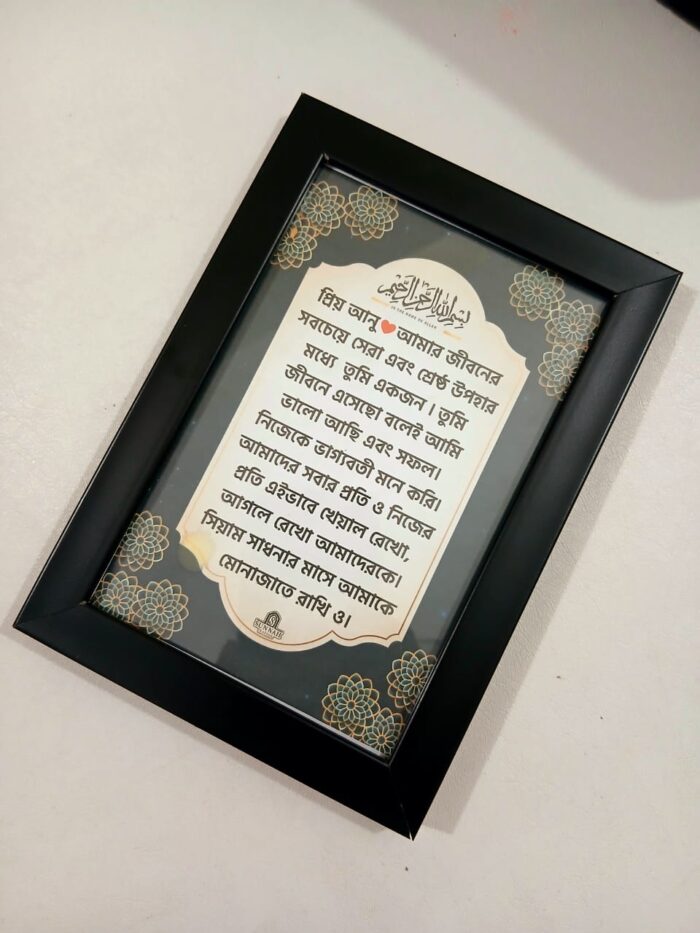 بسم الله الرحمن الرحيم
IN THE NAME OF ALLAH
প্রিয় আনু❤️আমার জীবনের
সবচেয়ে সেরা এবং শ্রেষ্ঠ উপহার
মধ্যে তুমি একজন। তুমি
জীবনে এসেছো বলেই আমি
ভালো আছি এবং সফল।
নিজেকে ভাগ্যবতী মনে করি।
আমাদের সবার প্রতি ও নিজের
প্রতি এইভাবে খেয়াল রেখো,
আগলে রেখো আমাদেরকে।
সিয়াম সাধনার মাসে আমাকে
মোনাজাতে রাখি ও।
SUNNAH